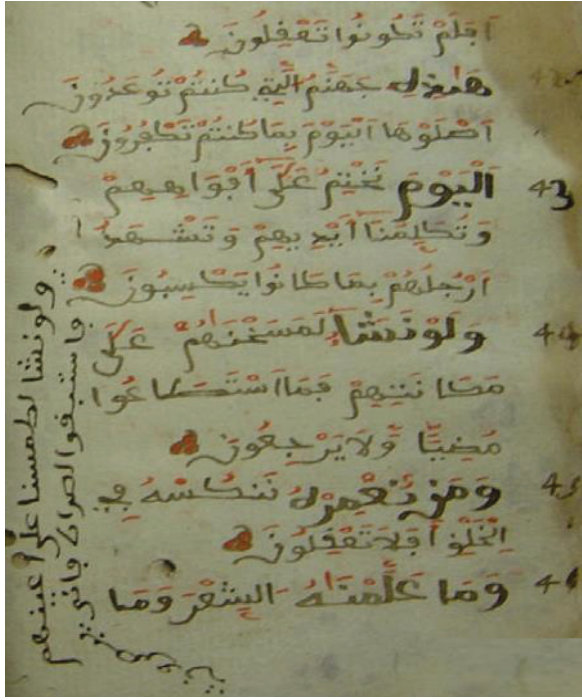 اَفَلَمْ تَكُونُوا تَعْقِلُونَ
هَٰذِهِ جَهَنَّمُ الَّتِي كُنتُمْ تُوعَدُونَ 42
اَصْلَوْهَا اَلْيَوْمَ بِمَا كُنتُمْ تَكْفُرُونَ
اَلْيَوْمَ نَخْتِمُ عَلَى أَفْوَاهِهِمْ 43
وَتُكَلِّمُنَا أَيْدِيهِمْ وَتَشْهَدُ
اَرْجُلُهُمْ بِمَا كَانُوا يَكْسِبُونَ
وَلَوْ نَشَاءُ لَمَسَخْنَهُمْ عَلَى 44
مَكَانَتِهِمْ فَمَا اَسْتَطَاعُوا
مُضِيًّا وَلَا يَرْجِعُونَ
وَمَن نُّعَمِّرْهُ نَنكُسْهُ فِي 45
اِلْخَلْقِ أَفَلَا تَعْقِلُونَ
وَمَا عَلَّمْنَهُ اَلشِّعْرَ وَمَا 46
ولو نشا لطمسنا على أعينهم
فاستبقوا الصراط فانى
يبصرون